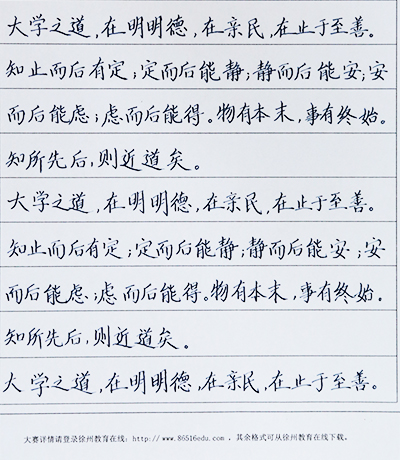 大学之道,在明明德,在亲民,在止于至善。
知止而后有定;定而后能静;静而后能安;安
而后能虑;虑而后能得。物有本末,事有终始。
知所先后,则近道矣。
大学之道,在明明德,在亲民,在止于至善。
知止而后有定;定而后能静;静而后能安;安
而后能虑;虑而后能得。物有本末,事有终始。
知所先后,则近道矣。
大学之道,在明明德,在亲民,在止于至善。
大赛详情请登录徐州教育在线:http://www.86516edu.com ,其余格式可从徐州教育在线下载。